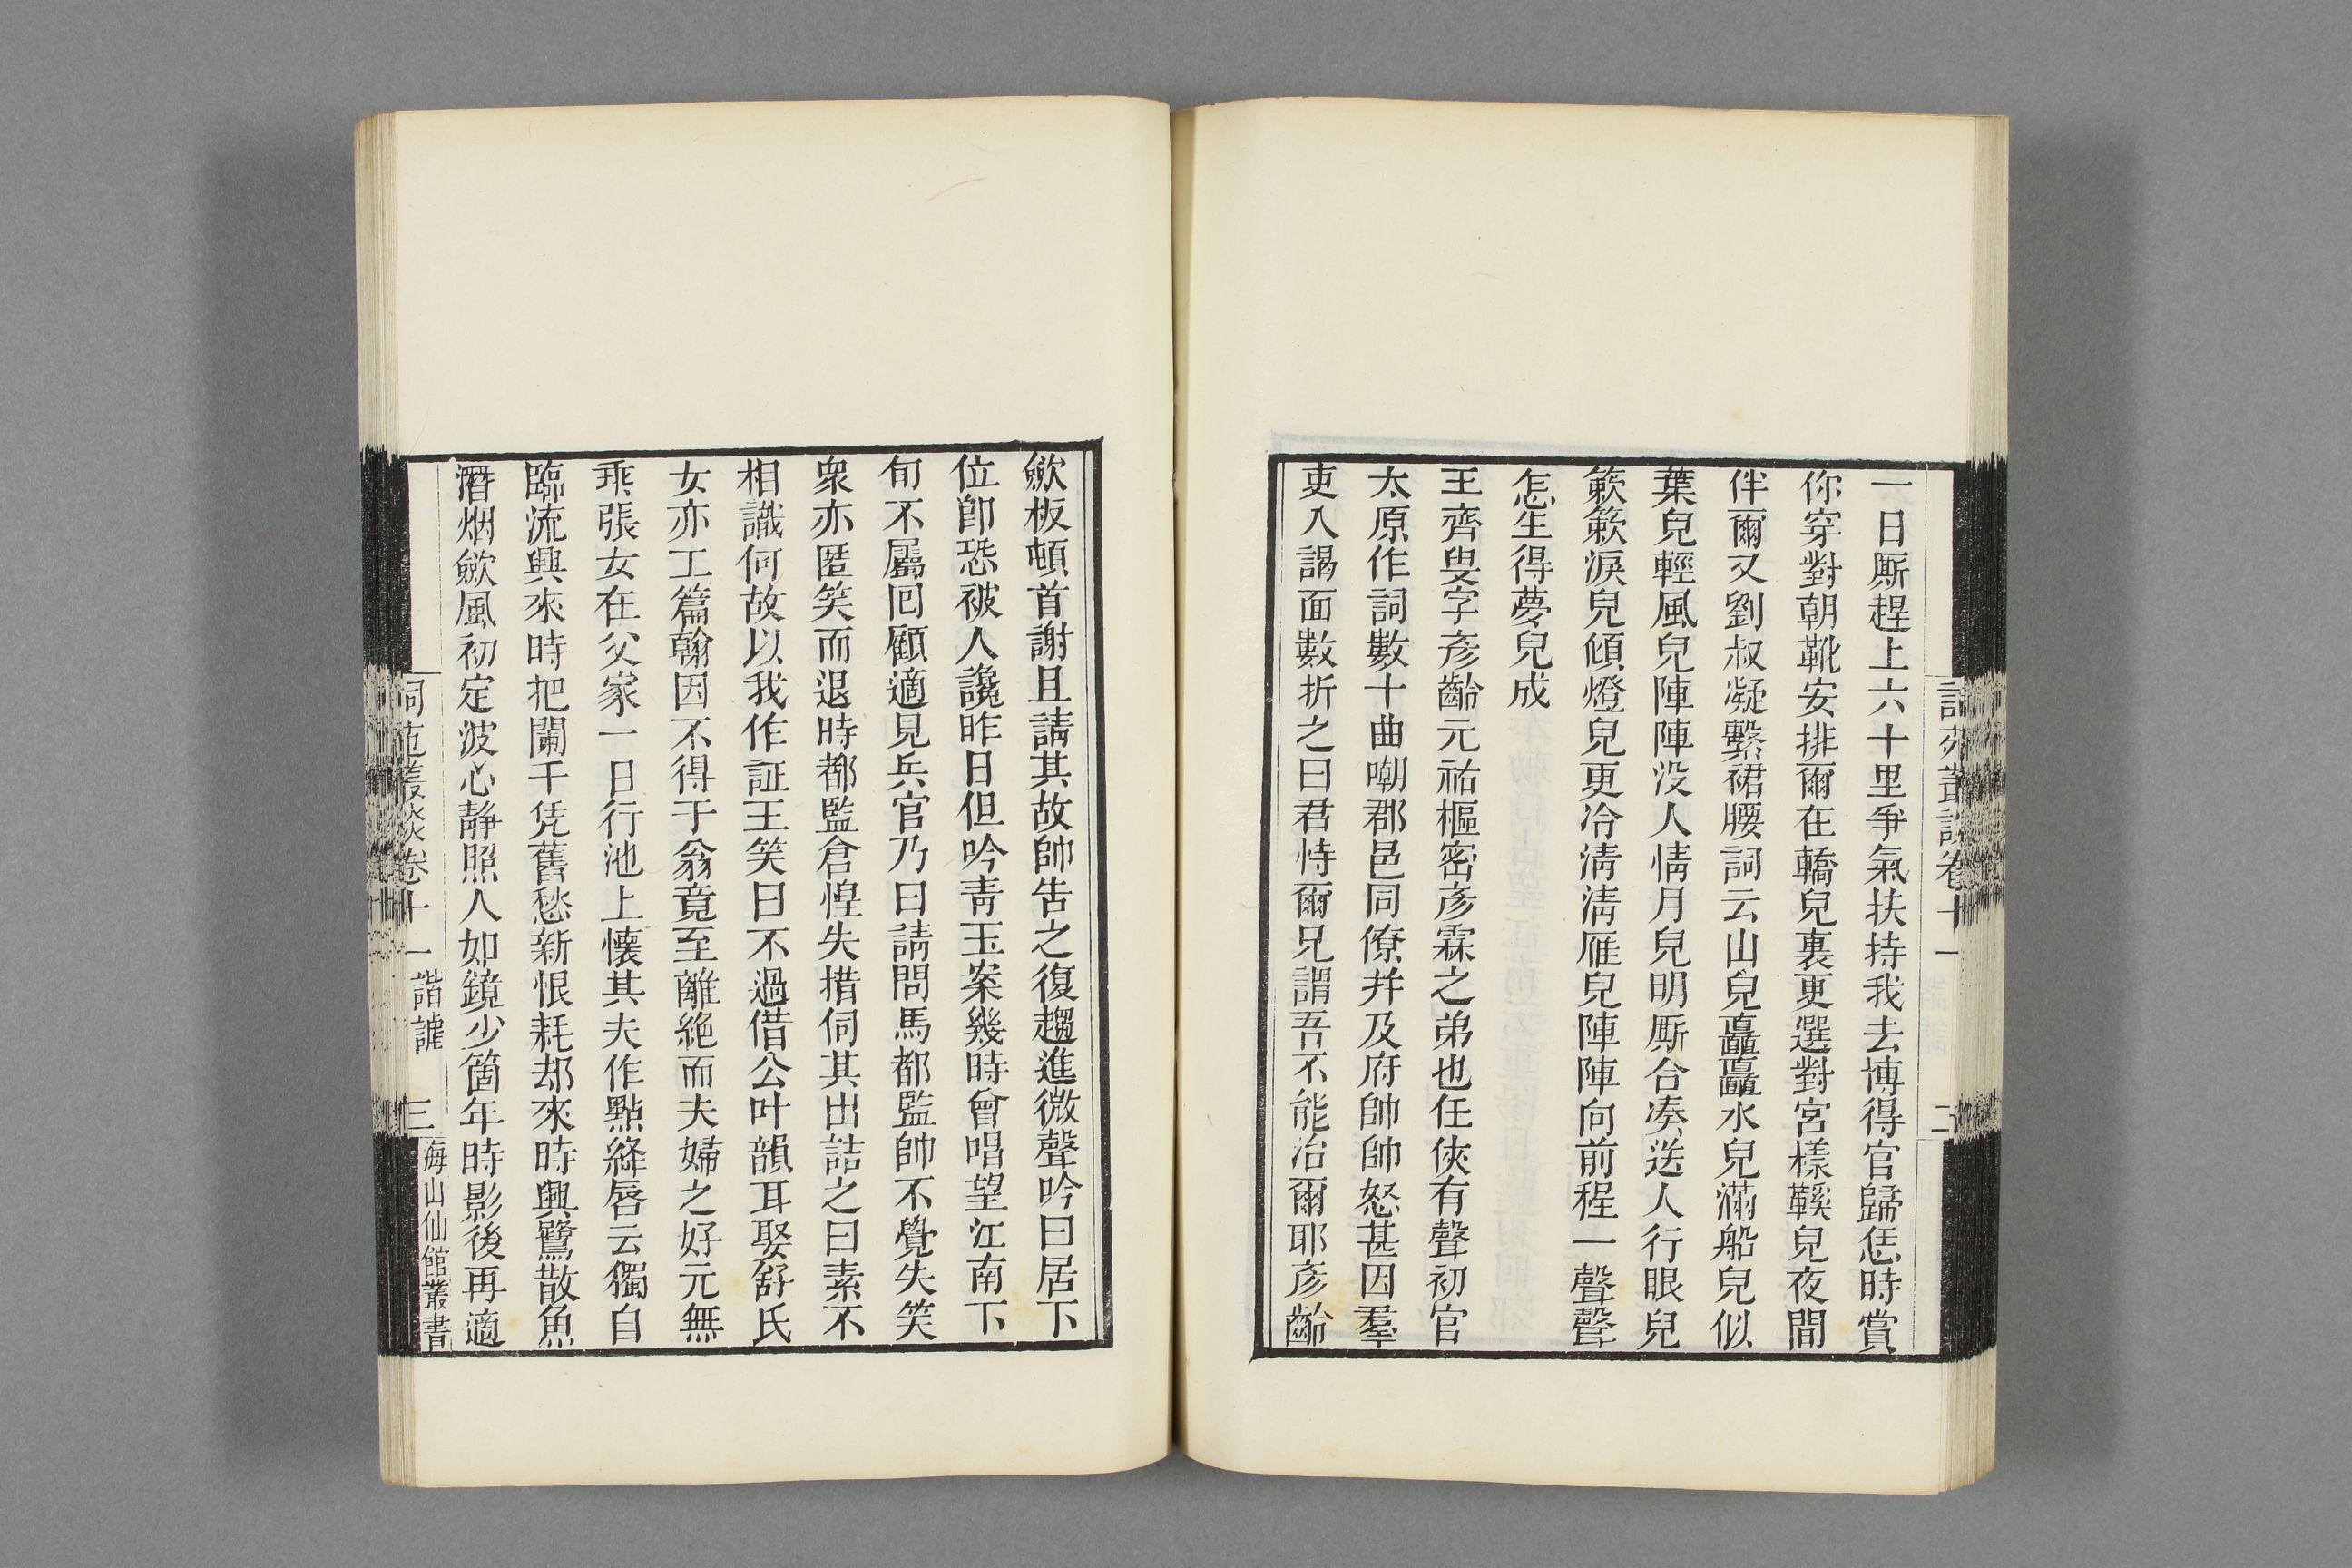 詞苑叢談卷十一 二
一日厮趕上六十里爭氣扶持我去博得官歸恁時賞
你穿對朝靴安排爾在轎兒裏更選對宮樣鞵兒夜間
伴爾又劉叔凝繫裙腰詞云山兒矗矗水兒滿船兒似
葉兒輕風兒陣陣没人情月兒明厮合凑送人行眼兒
簌簌淚兒傾燈兒更冷淸淸雁兒陣陣向前程一聲聲
怎生得夢兒成
王齊叟字彥齡元祐樞密彥霖之弟也任俠有聲初官
太原作詞數十曲嘲郡邑同僚并及府帥帥怒甚因羣
吏入謁面數折之曰君恃爾兄謂吾不能治爾耶彥齡
歛板頓首謝且請其故帥告之復趨進微聲吟曰居下
位卽恐被人讒昨日但吟靑玉案幾時曾唱望江南下
旬不屬囘顧適見兵官乃曰請問馬都監帥不覺失笑
衆亦匿笑而退時都監倉惶失措伺其出詰之曰素不
相識何故以我作証王笑曰不過借公叶韻耳娶舒氏
女亦工篇翰因不得于翁竟至離絶而夫婦之好元無
乖張女在父家一日行池上懷其夫作點絳唇云獨自
臨流興來時把闌干凭舊愁新恨耗却來時興鷺散魚
潛烟歛風初定波心靜照人如鏡少箇年時影後再適
詞苑叢談卷十一 諧謔 三 海山仙館叢書